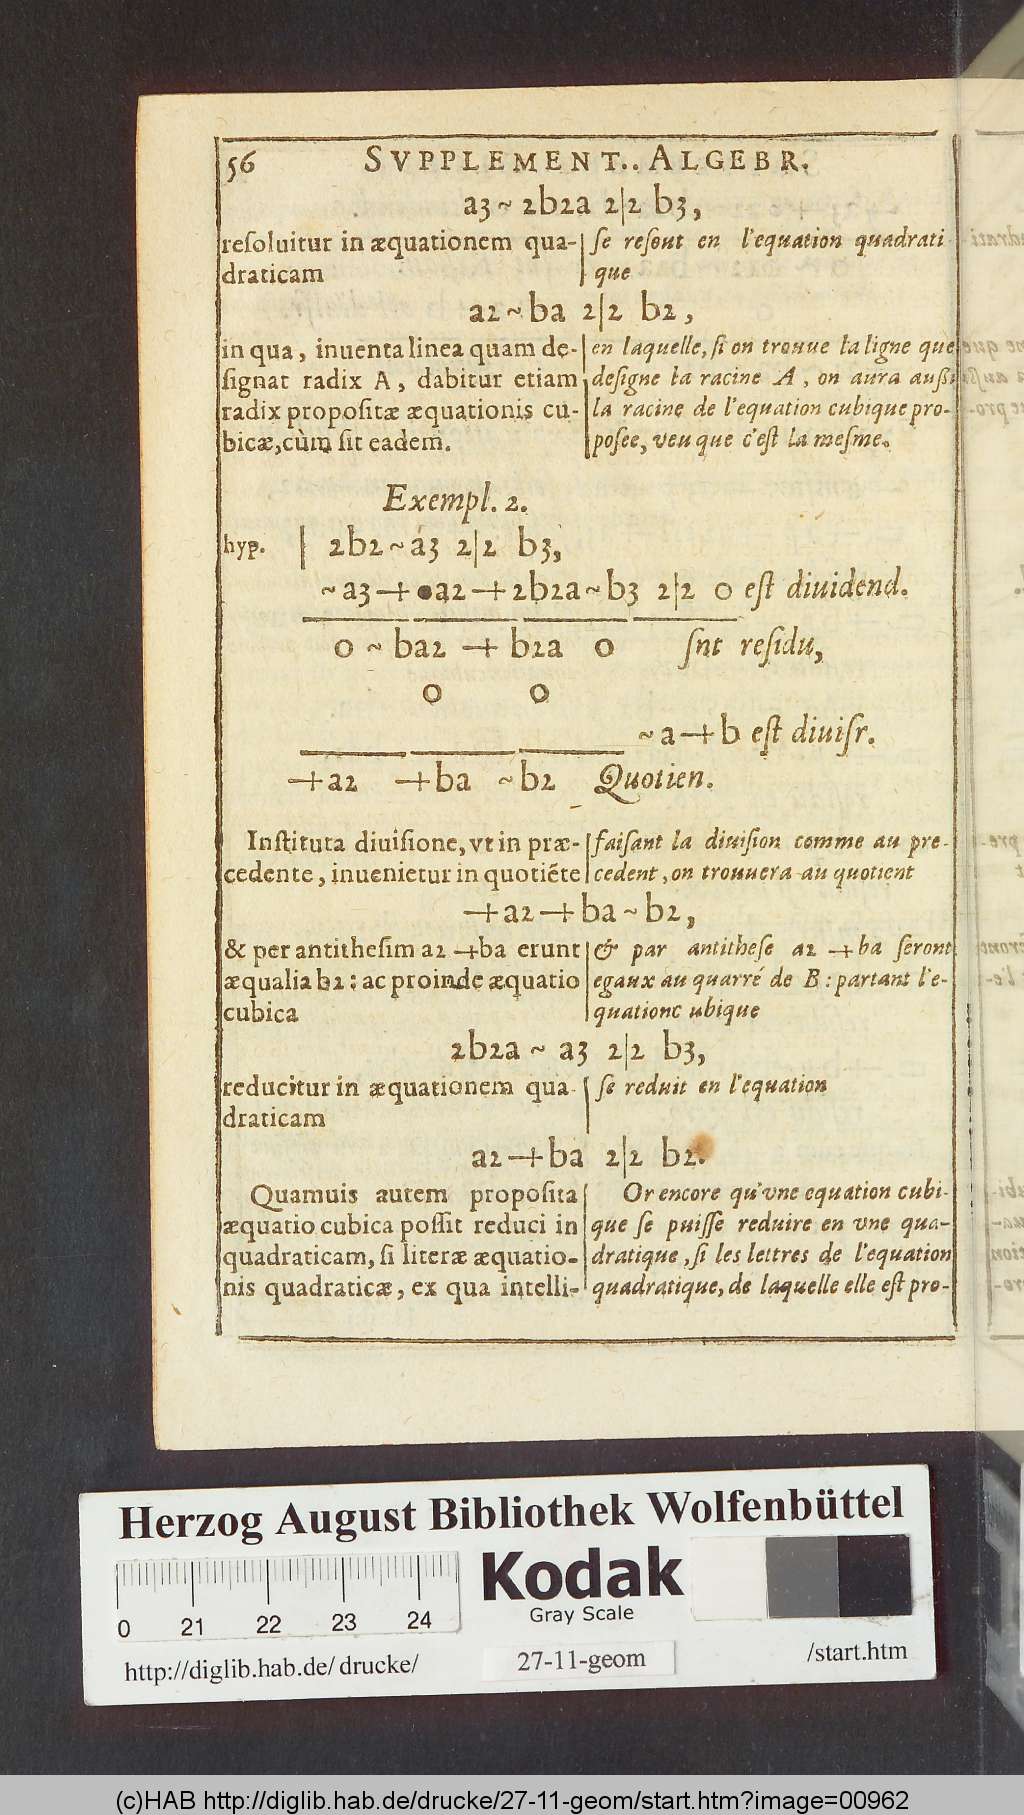 56 SVPPLEMENT.. ALGEBR.
a3 ~ 2b2a 2|2 b3,
reſoluitur in æquationem qua-
draticam
ſe reſout en l'equation quadrati-
que
a2 ~ ba 2|2 b2,
in qua, inuenta linea quam de-
ſignat radix A, dabitur etiam
radix propoſitæ æquationis cu-
bicæ, cùm ſit eadem.
en laquelle, ſi on trouue la ligne que
deſigne la racine A, on aura außi
la racine de l'equation cubique pro-
poſee, veu que c'eſt la meſme.
Exempl. 2.
hyp. | 2b2 ~ a3 2|2 b3,
~ a3 + a2 + 2b2a ~ b3 2|2 0 eſt diuidend.
0 ~ ba2 + b2a 0 ſnt reſidu,
0 0
~ a + b eſt diuiſr.
+ a2 + ba ~ b2 Quotien.
Inſtituta diuiſione, vt in præ-
cedente, inuenietur in quotiẽte
faiſant la diuiſion comme au pre-
cedent, on trouuera au quotient
+ a2 + ba ~ b2,
& per antitheſim a2 + ba erunt
æqualia b2 : ac proinde æquatio
cubica
& par antitheſe a2 + ba ſeront
egaux au quarré de B : partant l'e-
quationc ubique
2b2a ~ a3 2|2 b3,
reducitur in æquationem qua-
draticam
ſe reduit en l'equation
a2 + ba 2|2 b2.
Quamuis autem propoſita
æquatio cubica poſſit reduci in
quadraticam, ſi literæ æquatio-
nis quadraticæ, ex qua intelli-
Or encore qu'vne equation cubi-
que ſe puiſſe reduire en vne qua-
dratique, ſi les lettres de l'equation
quadratique, de laquelle elle eſt pro-
Herzog August Bibliothek Wolfenbüttel
Kodak
Gray Scale
0 21 22 23 24
http://diglib.hab.de/drucke/ 27-11-geom /start.htm
(c)HAB http://diglib.hab.de/drucke/27-11-geom/start.htm?image=00962